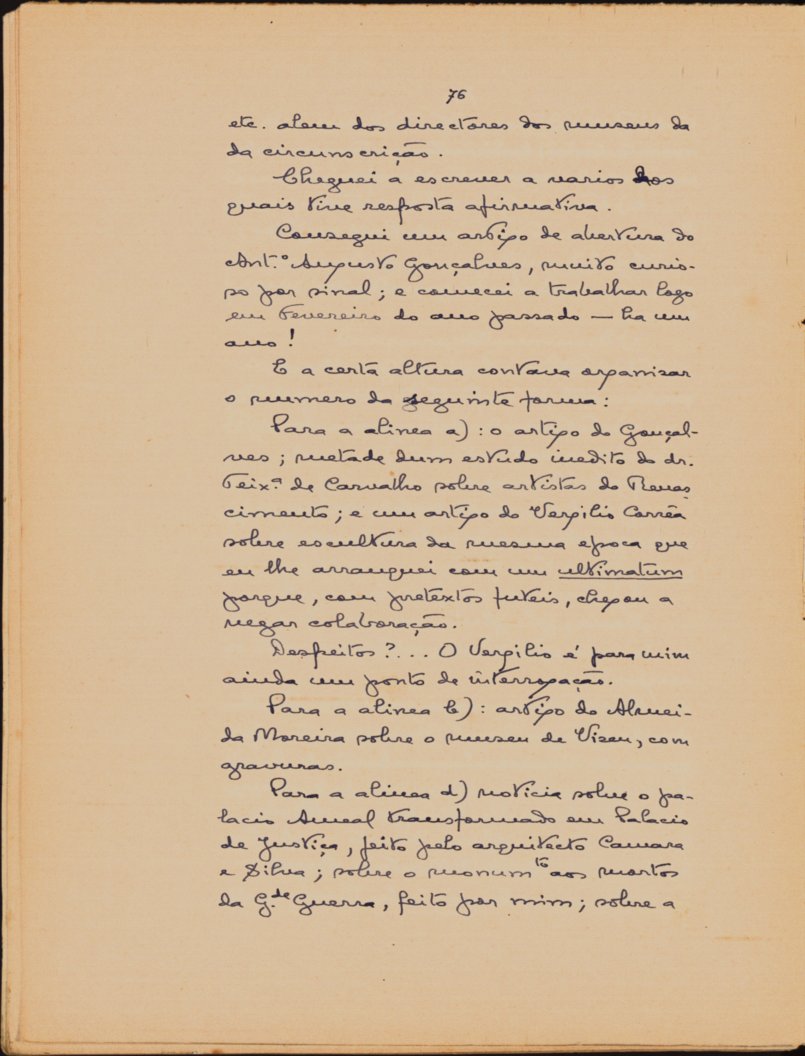 76
etc. alem dos directores dos museus da
da circunscrição.
Cheguei a escrever a varios dos
quais tive resposta afirmativa.
Consegui um artigo de abertura do
Ant.º Augusto Gonçalves, muito curio-
so por sinal; e comecei a trabalhar logo
em Fevereiro do ano passado — ha um
ano!
E a certa altura contava organizar
o numero da seguinte forma:
Para a alinea a): o artigo do Gonçal-
ves; metade dum estudo inedito do dr.
Teix.ª de Carvalho sobre artistas do Renas
cimento; e um artigo do Vergilio Corrêa
sobre escultura da mesma epoca que
eu lhe arranquei com um ultimatum
porque, com pretextos futeis, chegou a
negar colaboração.
Despeitos?... O Vergilio é para mim
ainda um ponto de interrogação.
Para a alinea b): artigo do Almei-
da Moreira sobre o museu de Vizeu, com
gravuras.
Para a alinea d) noticia sobre o pa-
lacio Ameal transformado em Palacio
de Justiça, feito pelo arquitecto Camara
e Silva; sobre o monum.to aos mortos
da G.de Guerra, feito por mim; sobre a